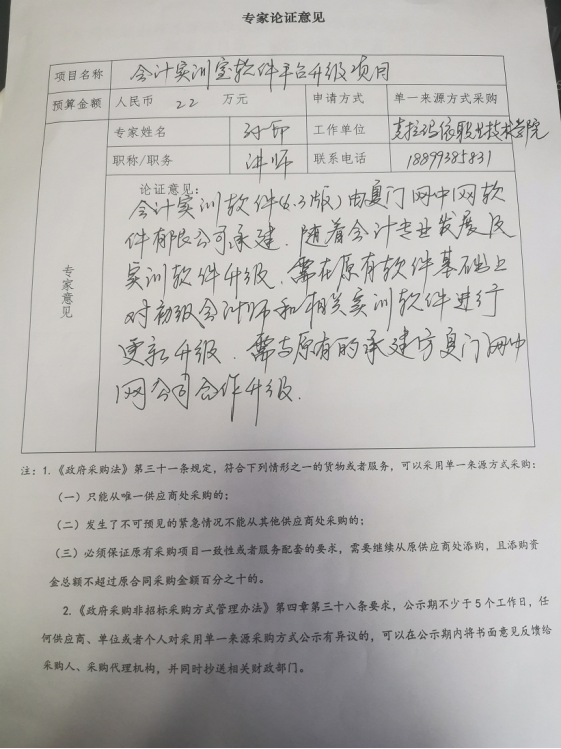 专家论证意见
项目名称 会计实训室软件平台升级项目
预算金额 人民币 22 万元 申请方式 单一来源方式采购
专家姓名 工作单位 克拉玛依职业技术学院
职称/职务 讲师 联系电话 18899385831
专家意见
论证意见:
会计实训软件(6.3版)由厦门网中网软
件有限公司承建.随着会计专业发展及
实训软件升级.需在原有软件基础上
对初级会计师和相关实训软件进行
更新升级.需与原有的承建方厦门网中
网公司合作升级.
注:1.《政府采购法》第三十一条规定,符合下列情形之一的货物或者服务,可以采用单一来源方式采购:
(一)只能从唯一供应商处采购的;
(二)发生了不可预见的紧急情况不能从其他供应商处采购的;
(三)必须保证原有采购项目一致性或者服务配套的要求,需要继续从原供应商处添购,且添购资
金总额不超过原合同采购金额百分之十的。
2.《政府采购非招标采购方式管理办法》第四章第三十八条要求,公示期不少于5个工作日,任
何供应商、单位或者个人对采用单一来源采购方式公示有异议的,可以在公示期内将书面意见反馈给
采购人、采购代理机构,并同时抄送相关财政部门。